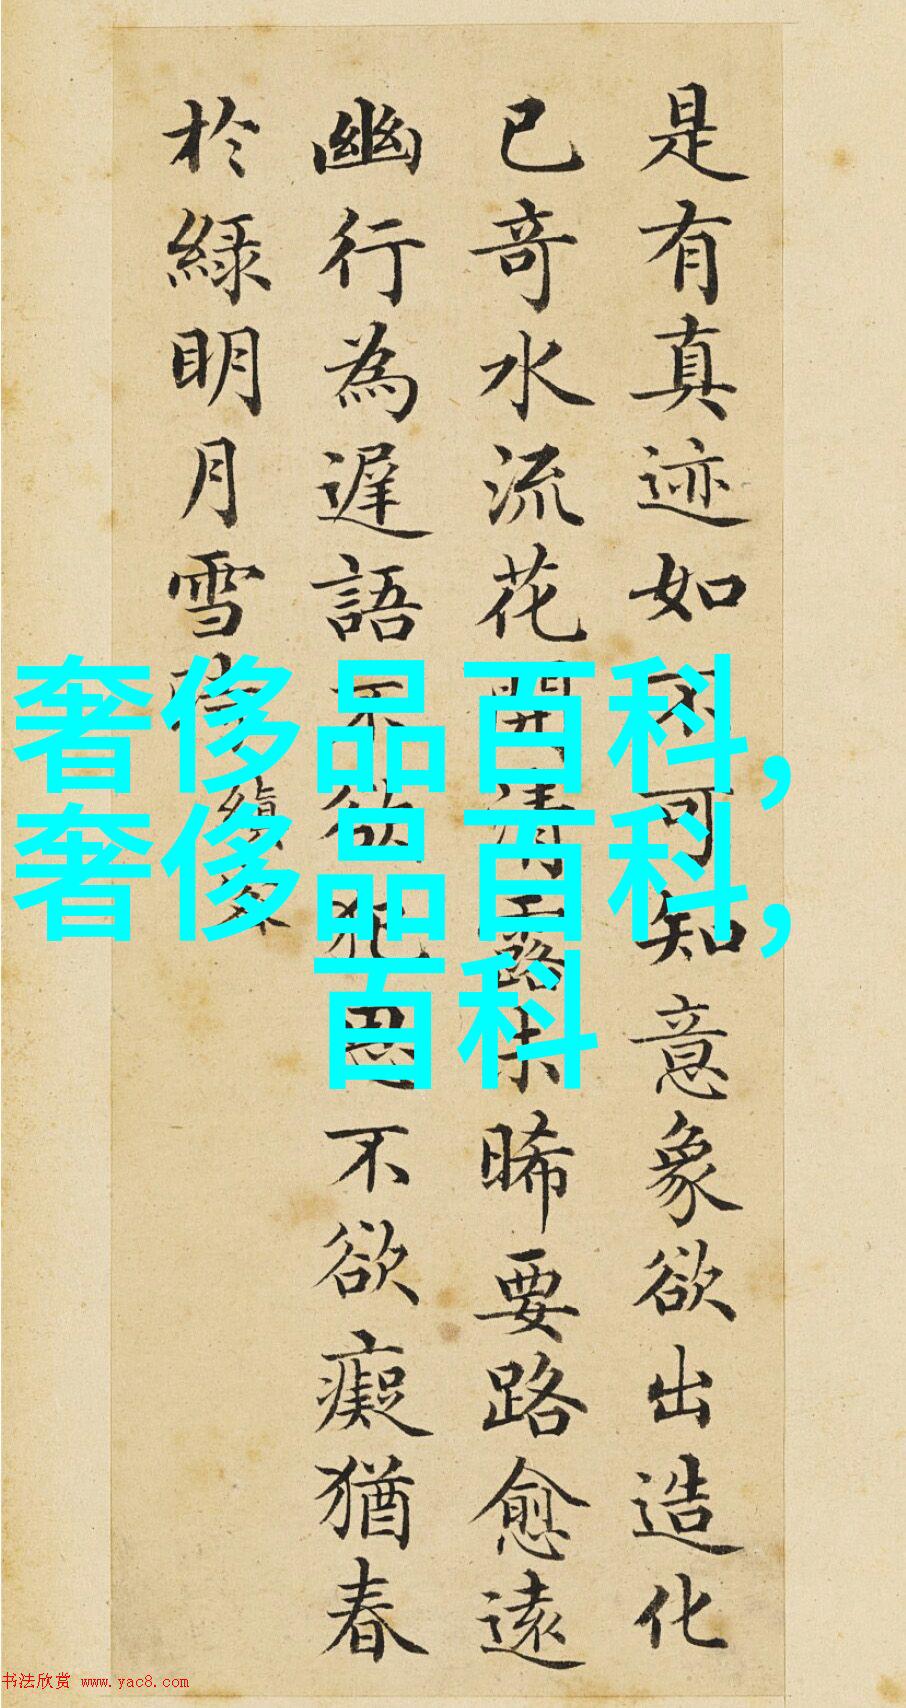 是有真迹如不可知意象欲出造化
已奇水流花開清露未晞要路愈遠
幽行為遲語不欲犯思不欲癡猶春
於綠明月雪時
縝密
奢侈品百科,
奢侈品百科,
百科
书法欣赏 www.yac8.com